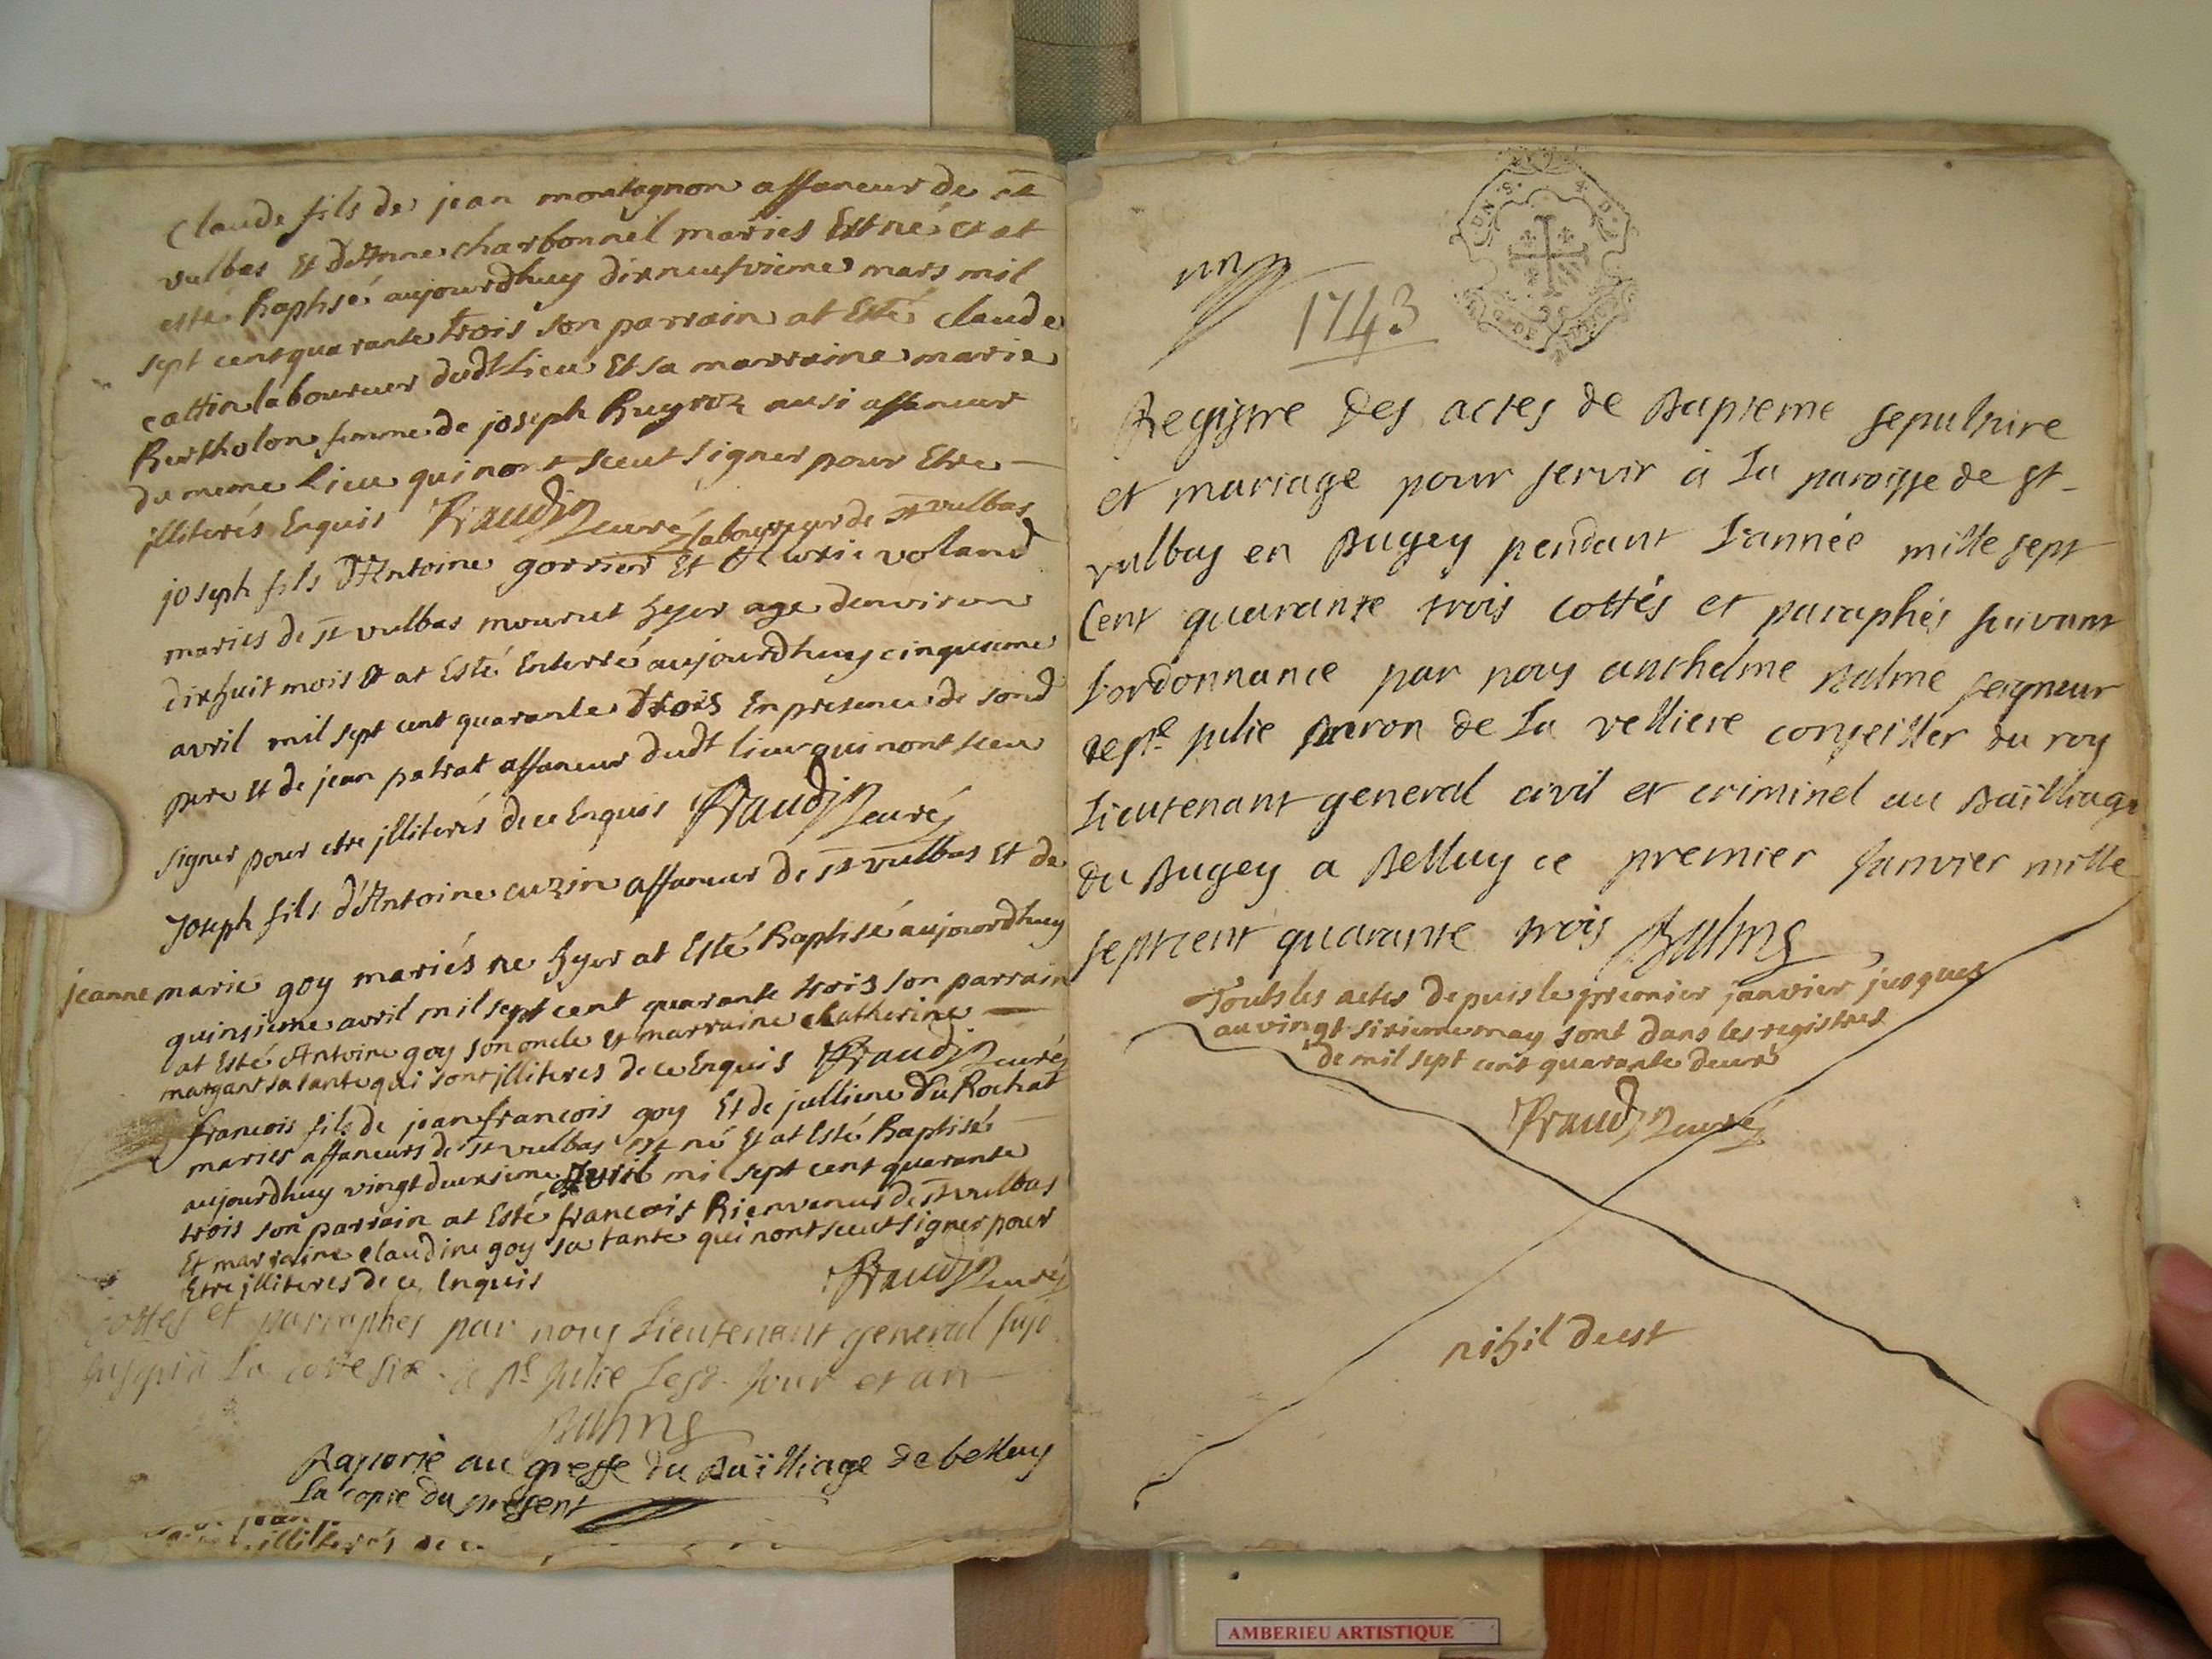 Claude fils de jean montagnon affaneur de st
vulbas Et d'Anne charbonnel mariés Est né et at
esté Baptisé aujourdhuy dixneufvieme mars mil
sept cent quarante trois son parrain at Esté claude
cattin laboureur dudt Lieu Et sa marraine marie
Bertholon femme de joseph Bugroz ausi affaneur
du meme Lieu qui nont sceut signer pour Etre
jlliterés Enquis Braudin curé
laboureur de st vulbas
joseph fils d'Antoine gorrier Et Marie voland
mariés de st vulbas mourut hyer age denviron
dixhuit mois Et at Esté Enterré aujourdhuy cinquieme
avril mil sept cent quarante trois En presence de sond
pere Et de jean patrat affaneur dudt lieu qui nont sceu
signer pour etre jlliterés de ce Enquis Braudin curé
Joseph fils d'Antoine cuzin affaneur de st vulbas Et de
jeanne marie goy mariés né hyer at Esté Baptisé aujourdhuy
quinsieme avril mil sept cent quarante trois son parrain
at Esté Antoine goy son oncle et marraine Catherine
margant sa tante qui sont jlliteres de ce Enquis Braudin curé
francois fils de jean francois goy Et de jullienne du Rochat
mariés affaneurs de st vulbas est né Et at Esté Baptisé
aujourdhuy vingt deuxsieme Avril mil sept cent quarante
trois son parrain at Esté francois Bienvenus de st vulbas
Et marraine claudine goy sa tante qui nont sceut signer pour
Etre jlliteres de ce Enquis Braudin curé
cottes et parraphes par nous Lieutenant general susd
jusqu'a La cotte six a st Julie Lesd. jour et an
Balme
Raporté au greffe du Bailliage de belley
La copie du present
illiterés de c
un
1743
Registre des actes de Bapteme sepulture
et mariage pour servir à La paroisse de st
vulbas en Bugey pendant L'année mille sept
Cent quarante trois cottés et paraphés suivant
L'ordonnance par nous anthelme Balme seigneur
de ste Julie Baron de La velliere conseiller du roy
Lieutenant general civil et criminel au Bailliage
du Bugey a Belley ce premier Janvier mille
septcent quarante trois Balme
Touts les actes depuis le premier janvier jusques
au vingt sixieme may sont dans les registres
de mil sept cent quarante deux
Braudin curé
nihil deest
AMBERIEU ARTISTIQUE